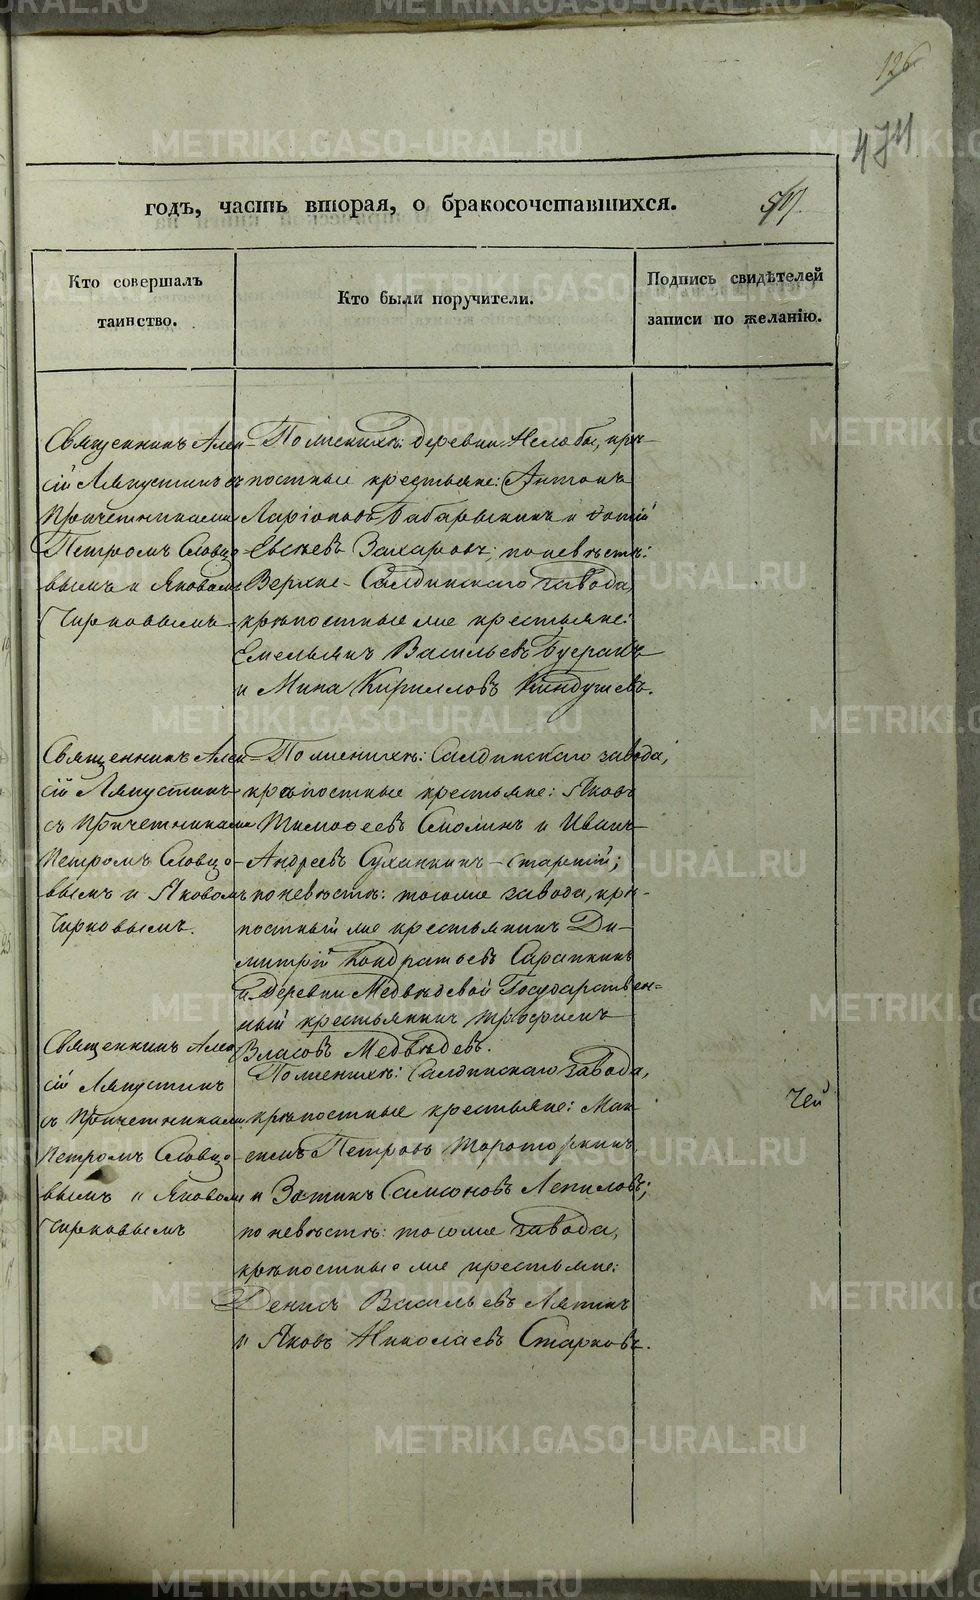 126
474
годъ, часть вторая, о бракосочетавшихся.
Кто совершалъ
таинство.
Кто были поручители.
Подпись свидѣтелей
записи по желанію.
Священникъ Алек-
сій Ляпустинъ съ
Причетниками
Петромъ Словцо-
вымъ и Яковомъ
Чирковымъ.
По женихѣ: деревни Нелобы, крѣ-
постные крестьяне: Антонъ
Ларіоновъ Бабарыкинъ и
Евсѣевъ Захаровъ; по невѣстѣ:
Верхне-Салдинскаго завода,
крѣпостные же крестьяне:
Емельянъ Васильевъ
и Мина Кирилловъ
Священникъ Алек-
сій Ляпустинъ
съ Причетниками
Петромъ Словцо-
вымъ и Яковомъ
Чирковымъ.
По женихѣ: Салдинскаго завода,
крѣпостные крестьяне: Яковъ
Тимофеевъ Смолинъ и Иванъ
Андреевъ Суханкинъ-старшій;
по невѣстѣ: тогоже завода, крѣ-
постный же крестьянинъ Ди-
митрій Кондратьевъ Сарапкинъ
и деревни Медвѣдевой Государствен-
ный крестьянинъ Трофимъ
Власовъ Медвѣдевъ.
Священникъ Алек
сій Ляпустинъ
съ Причетниками
Петромъ Словцо-
вымъ и Яковомъ
Чирковымъ
По женихѣ: Салдинскаго завода,
крѣпостные крестьяне: Мак-
симъ Петровъ
и Зотикъ Самсоновъ Лепиловъ;
по невѣстѣ: тогоже завода,
крѣпостные же крестьяне:
Денисъ Васильевъ Лятинъ
и Яковъ Николаевъ Старковъ.
Чей
METRIKI.GASO-URAL.RU